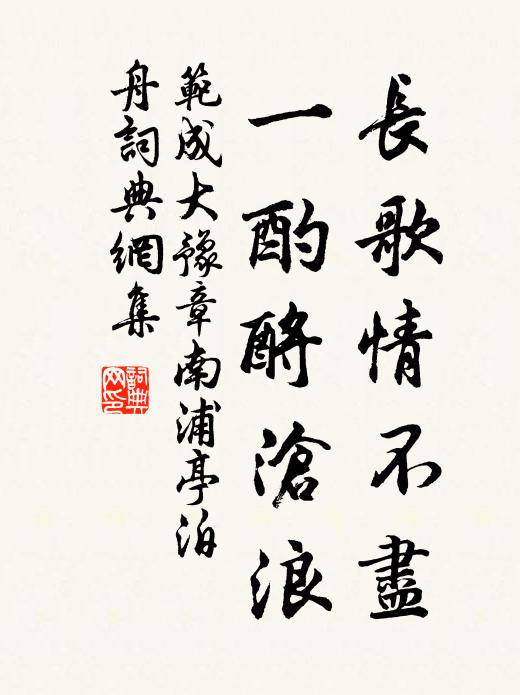 長歌情不盡
一酌酹滄浪
範成大豫章南浦亭泊
舟詞典網集
詞典网印